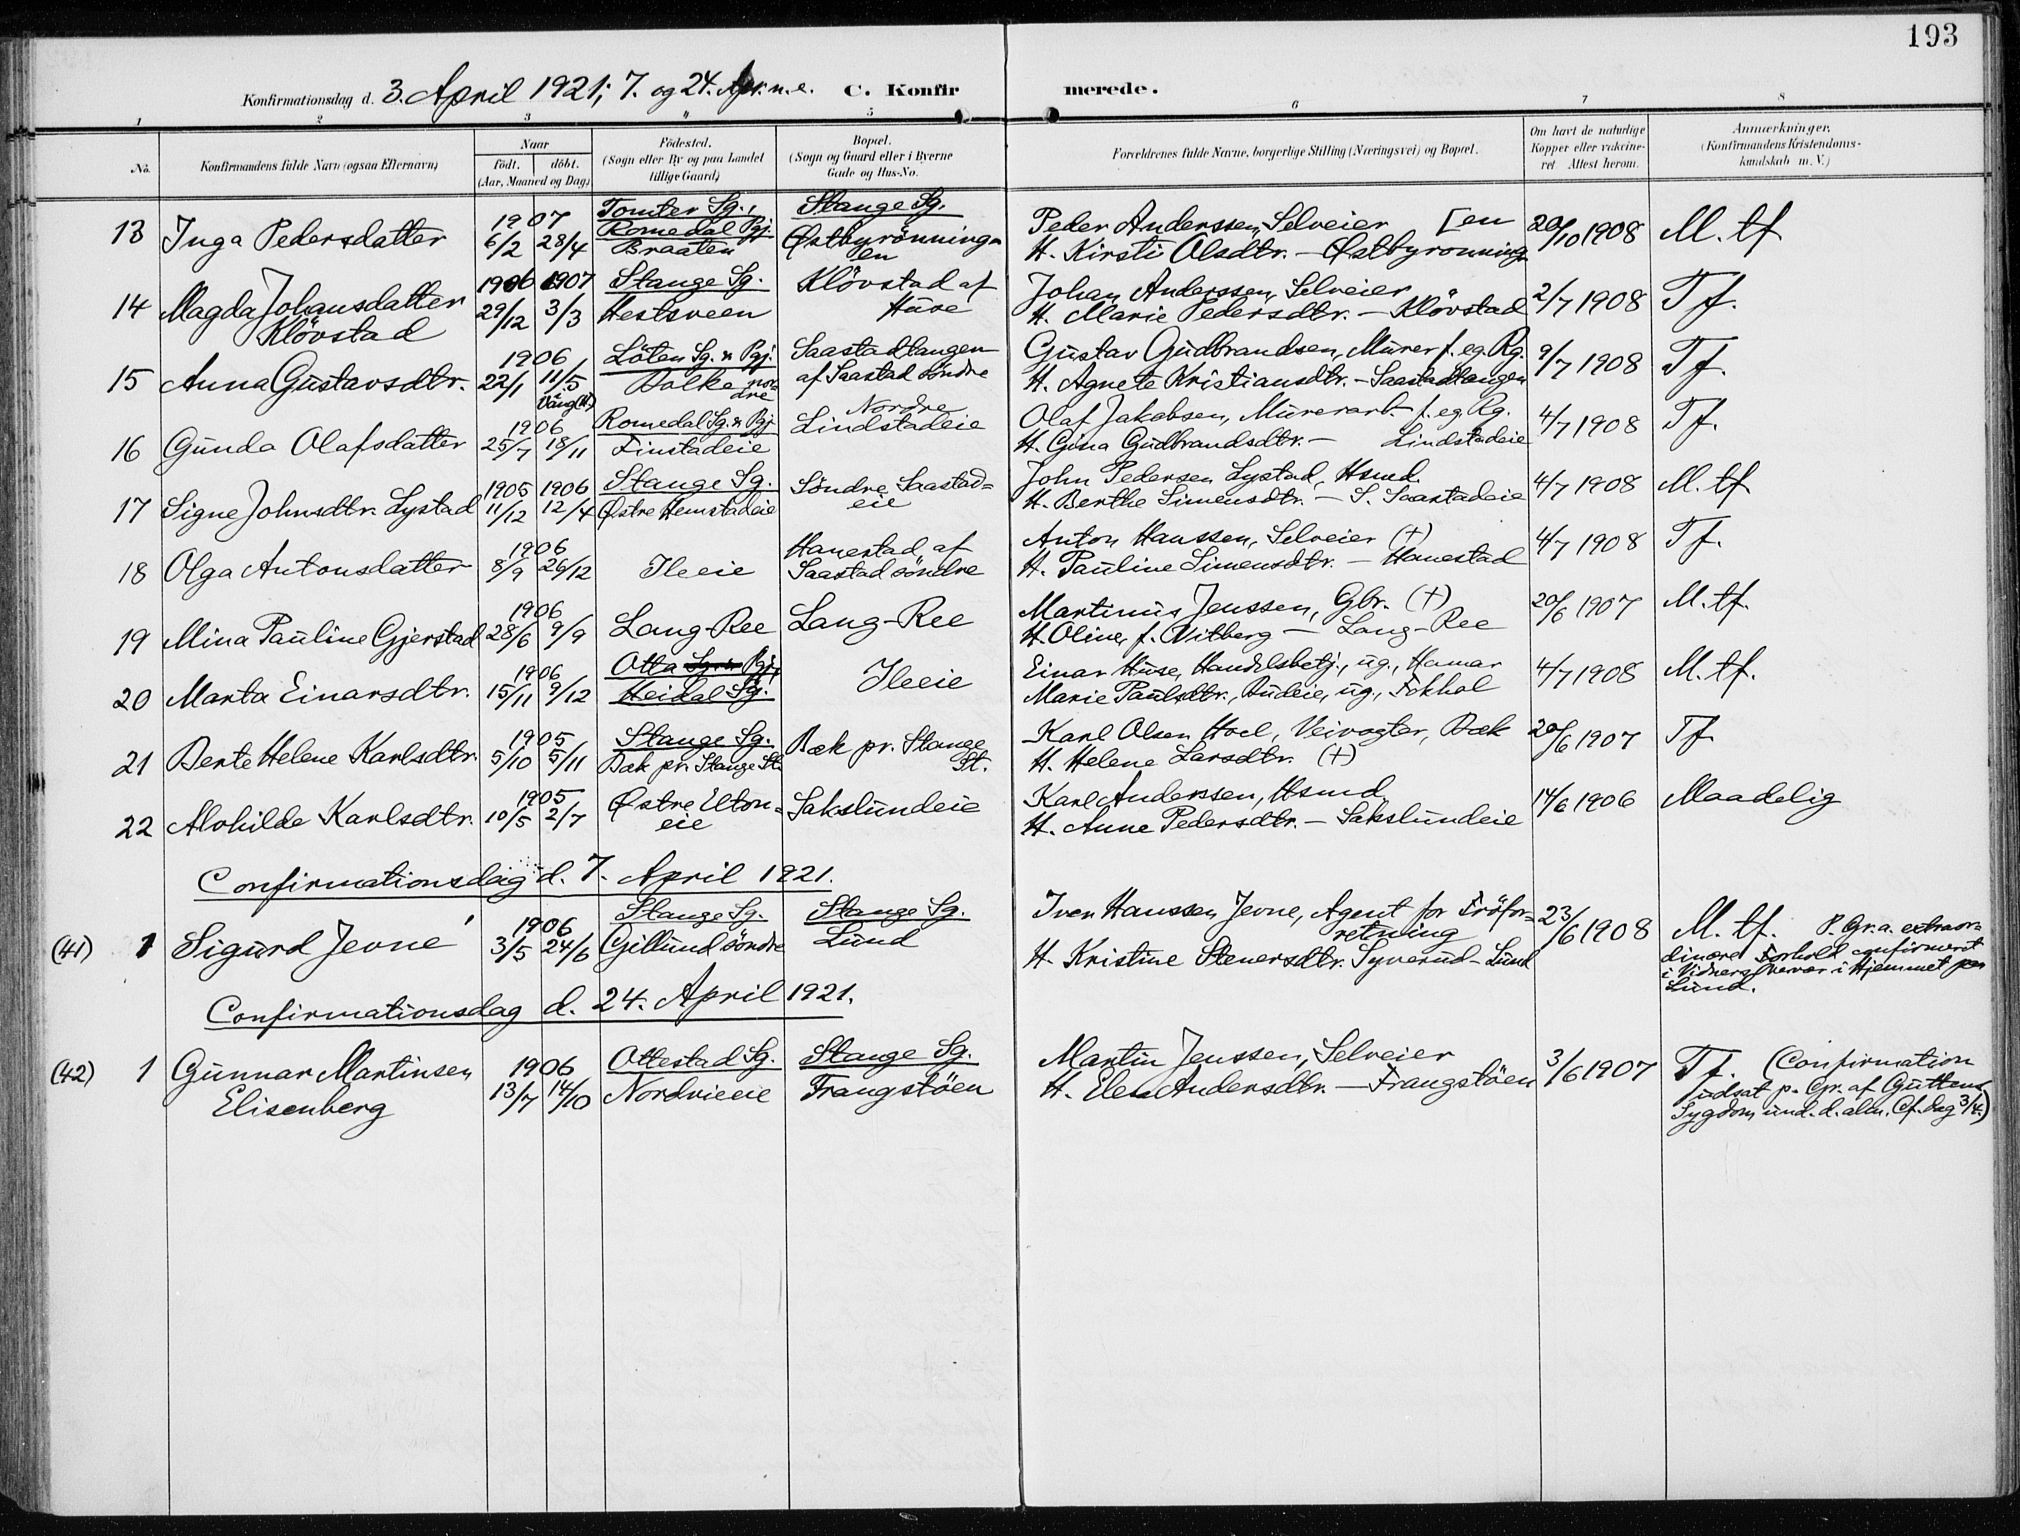 193
Konfirmationsdag d. 3. April 1921; 7. og 24. Apr. n.e. C. Konfirmerede.
1 2 3 4 5 6 7 8
No. Konfirmandens fulde Navn (ogsaa Efternavn) Naar født. døbt. (Aar, Maaned og Dag) Fødested. (Sogn eller By og paa Landet tillige Gaard) Bopæl. (Sogn og Gaard eller i Byerne Gade og Hus-No. Forældrenes fulde Navne, borgerlige Stilling (Næringsvei) og Bopæl. Om havt de naturlige Kopper eller vakcineret Attest herom. Anmærkninger. (Konfirmandens Kristendomskundskab m. V.)
13 Inga Pedersdatter 1907 6/2 28/4 Tomter Sg., Romedal Pgj. Braaten Stange Sg. Østbyrönningen Peder Anderssen, Selveier [en
H. Kirsti Olsdtr. – Østbyrönning 20/10 1908 M. tf.
14 Magda Johansdatter Klövstad 1906 1907 29/12 3/3 Stange Sg. Hestsveen Klövstad af Huse Johan Anderssen, Selveier
H. Marie Pedersdtr. – Klövstad 2/7 1908 Tf.
15 Anna Gustavsdtr. 1906 22/1 11/5 Vang (H.) Löten Sg. & Pgj. Dolke nordre Saastadtangen af Saastad söndre Gustav Gudbrandsen, Murer f. eg. Rg.
H. Agnete Kristiansdtr. – Saastadtangen 9/7 1908 Tf.
16 Gunda Olafsdatter 1906 25/7 18/11 Romedal Sg. & Pgj. Finstadeie Nordre Lindstadeie Olaf Jakobsen, Murerarb. f. eg. Rg.
H. Gina Gudbrandsdtr. – Lindstadeie 4/7 1908 Tf.
17 Signe Johnsdtr. Lystad 1905 1906 11/12 12/4 Stange Sg. Østre Hemstadeie Söndre Saastad=eie John Pedersen Lystad, Hsmd.
H. Berthe Simensdtr. – S. Saastadeie 4/7 1908 M. tf.
18 Olga Antonsdatter 1906 8/9 26/12 Ileeie Hanestad af Saastad söndre Anton Hanssen, Selveier (+)
H. Pauline Simensdtr. – Hanestad 4/7 1908 Tf.
19 Mina Pauline Gjerstad 1906 28/6 9/9 Lang-Ree Lang-Ree Martinus Jenssen, Gbr. (+)
H. Oline, f. Vitberg – Lang-Ree 20/6 1907 M. tf.
20 Marta Einarsdtr. 1906 15/11 9/12 Otta Pgj., Heidal Sg. Ileeie Einar Huse, Handelsbetj., ug., Hamar
Marie Paulsdtr., Budeie, ug., Fokhol 4/7 1908 M. tf.
21 Berte Helene Karlsdtr. 1905 5/10 5/11 Stange Sg. Bæk pr. Stange St. Bæk pr. Stange St. Karl Olsen Hoel, Veivogter, Bæk
H. Helene Larsdtr. (+) 20/6 1907 Tf.
22 Alvhilde Karlsdtr. 1905 10/5 2/7 Østre Elton=eie Sakslundeie Karl Anderssen, Hsmd
H. Anne Pedersdtr. – Sakslundeie 14/6 1906 Maadelig
Confirmationsdag d. 7. April 1921.
(41) 1 Sigurd Jevne 1906 3/5 24/6 Stange Sg. Gillund söndre Stange Sg. Lund Iver Hanssen Jevne, Agent for Fröfor=retning
H. Kristine Stenersdtr. Syverud – Lund 23/6 1908 M. tf. P. Gr. a. extraor=
dinære Forhold confirmeret
i Vidners Nærvær i Hjemmet paa
Lund.
Confirmationsdag d. 24. April 1921.
(42) 1 Gunnar Martinsen Elisenberg 1906 13/7 14/10 Ottestad Sg. Nordvieeie Stange Sg. Frangstöen Martin Jenssen, Selveier
H. Elen Andersdtr. – Frangstöen 3/6 1907 Tf. (Confirmation
udsat p. Gr. af Guttens
Sygdom und. d. alm. Cf. dag 3/4.)